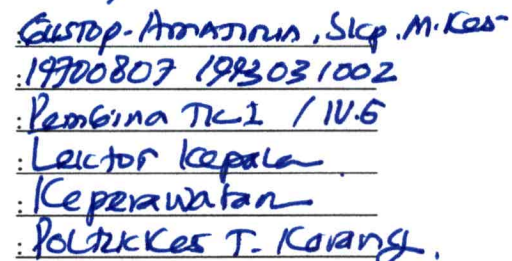 Gustop Amatiria, Skp. M.Kes
: 19700807 199303 1002
: Pembina TK I / IV.b
: Lektor Kepala
: Keperawatan
: Poltekkes T. Karang.